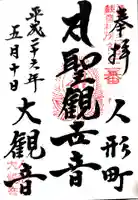 奉拝
人形町
聖観世音
大観音
平成二十六年
五月十日